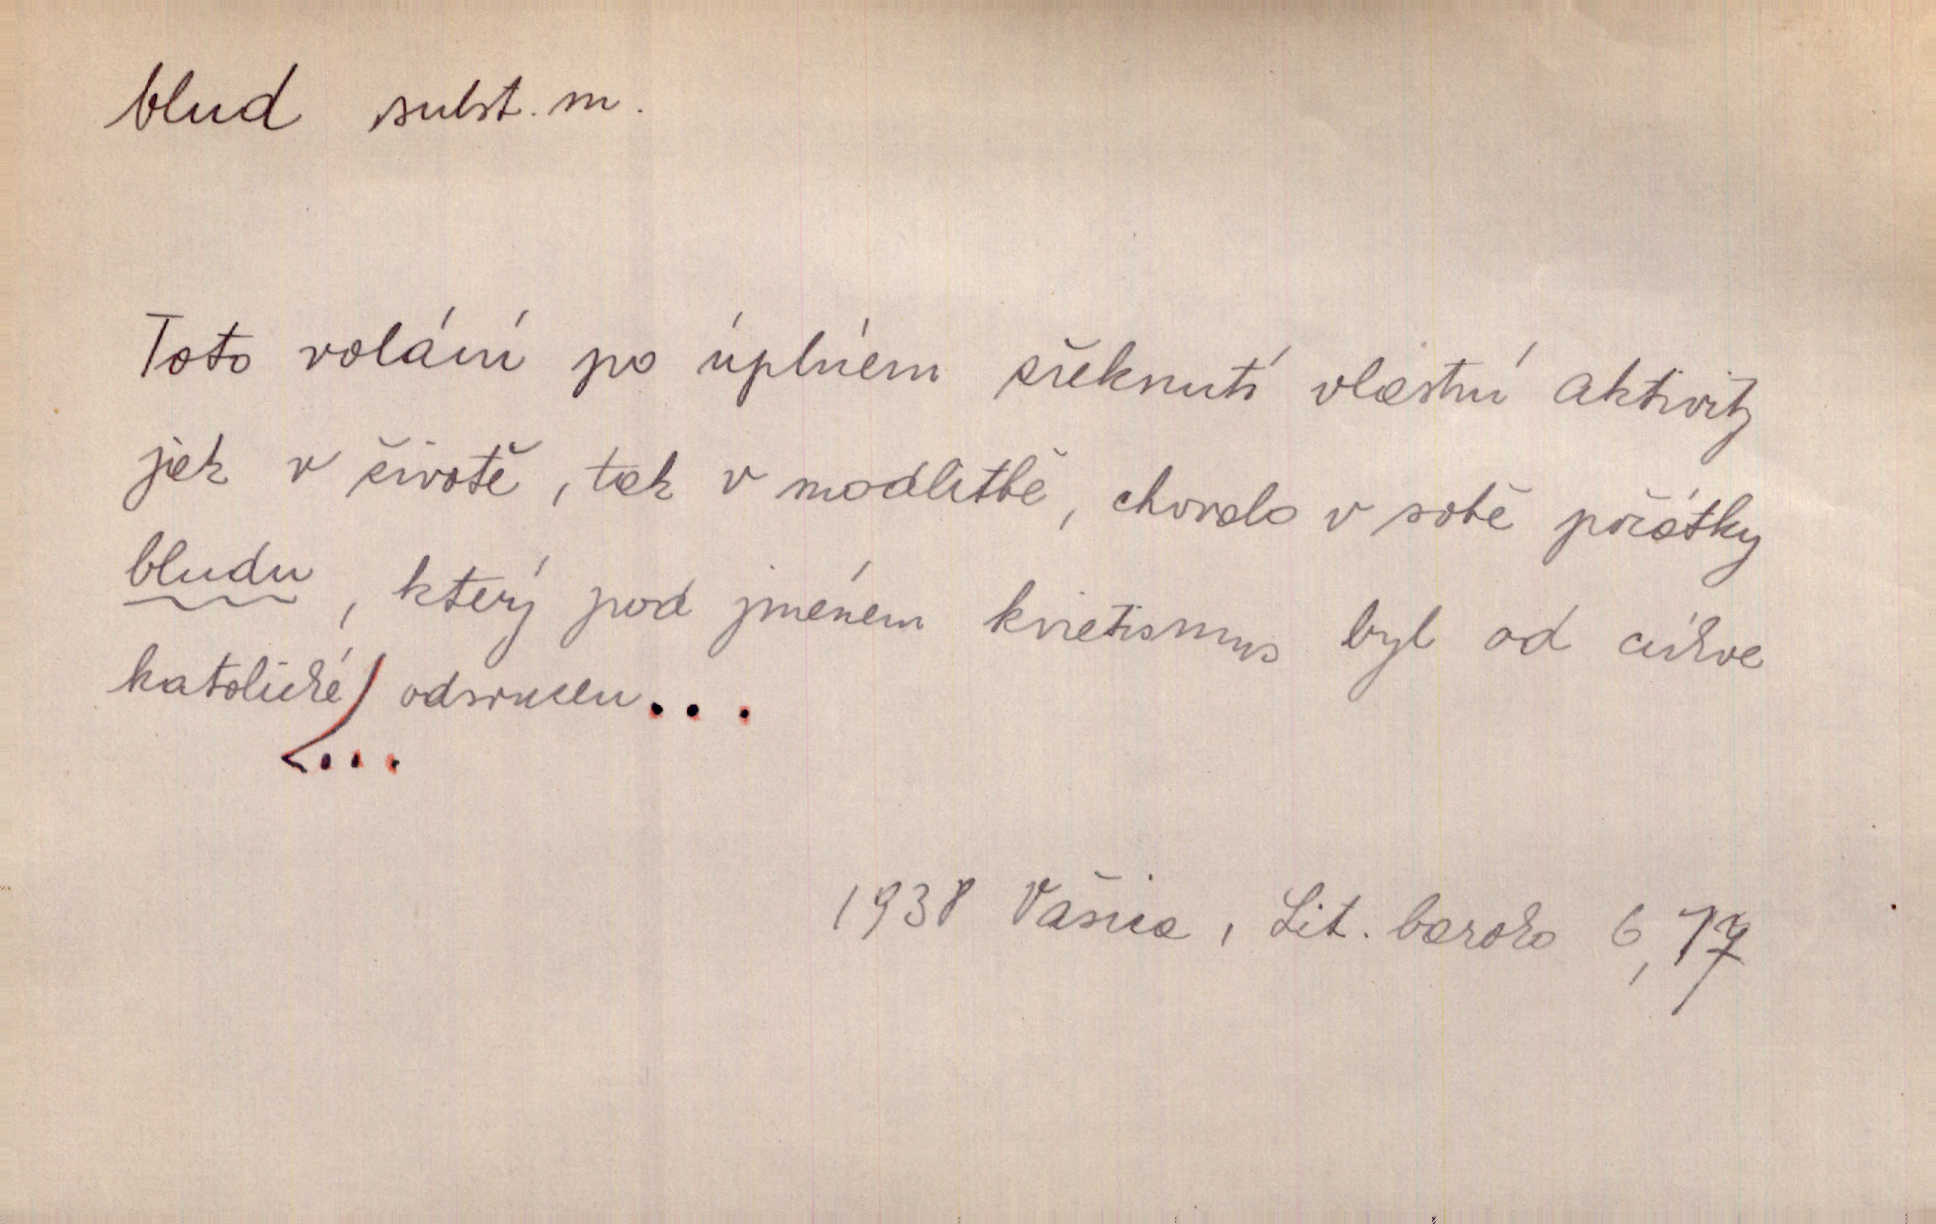 blud subst. m.
Toto volání po úplném zřeknutí vlastní aktivity
jak v životě, tak v modlitbě, chovalo v sobě počátky
bludu, který pod jménem kvietismus byl od církve
katolické odsouzen...
...
1938 Vašica, Lit. baroko 6,